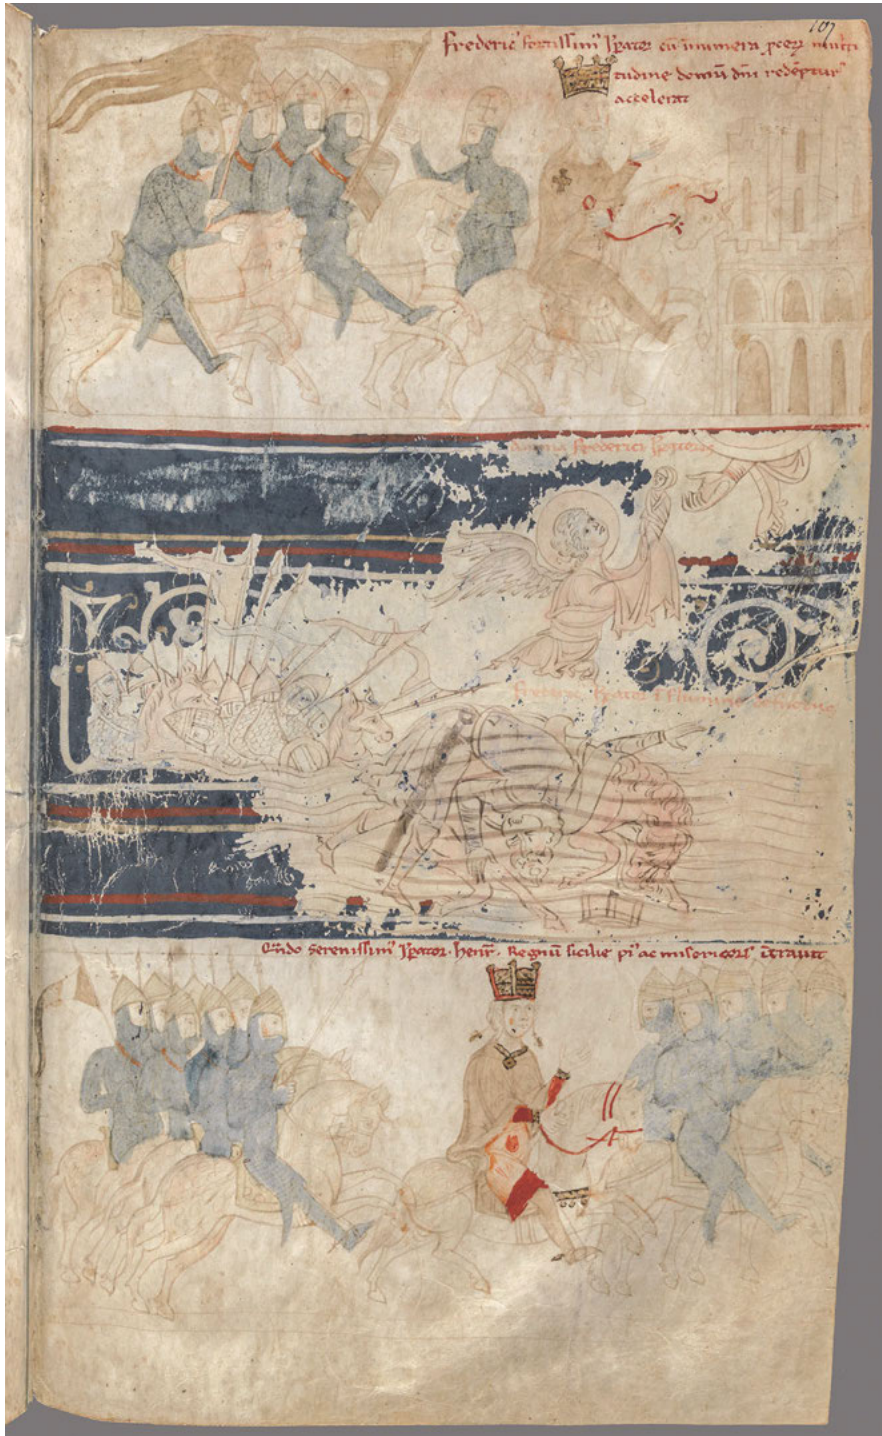 107
Frederic' fortissim' Ip̄ator cū innumera ꝓcerꝝ multi
tudine domū dn̄i redēptur'
accelerat
Anima frederici Ip̄atoris
frederic' Ip̄ator ī flumine defunctus
Qn̄do serenissim' Ip̄ator . henr̄ . Regnū sicilie pi' ac misoricors ītrauit